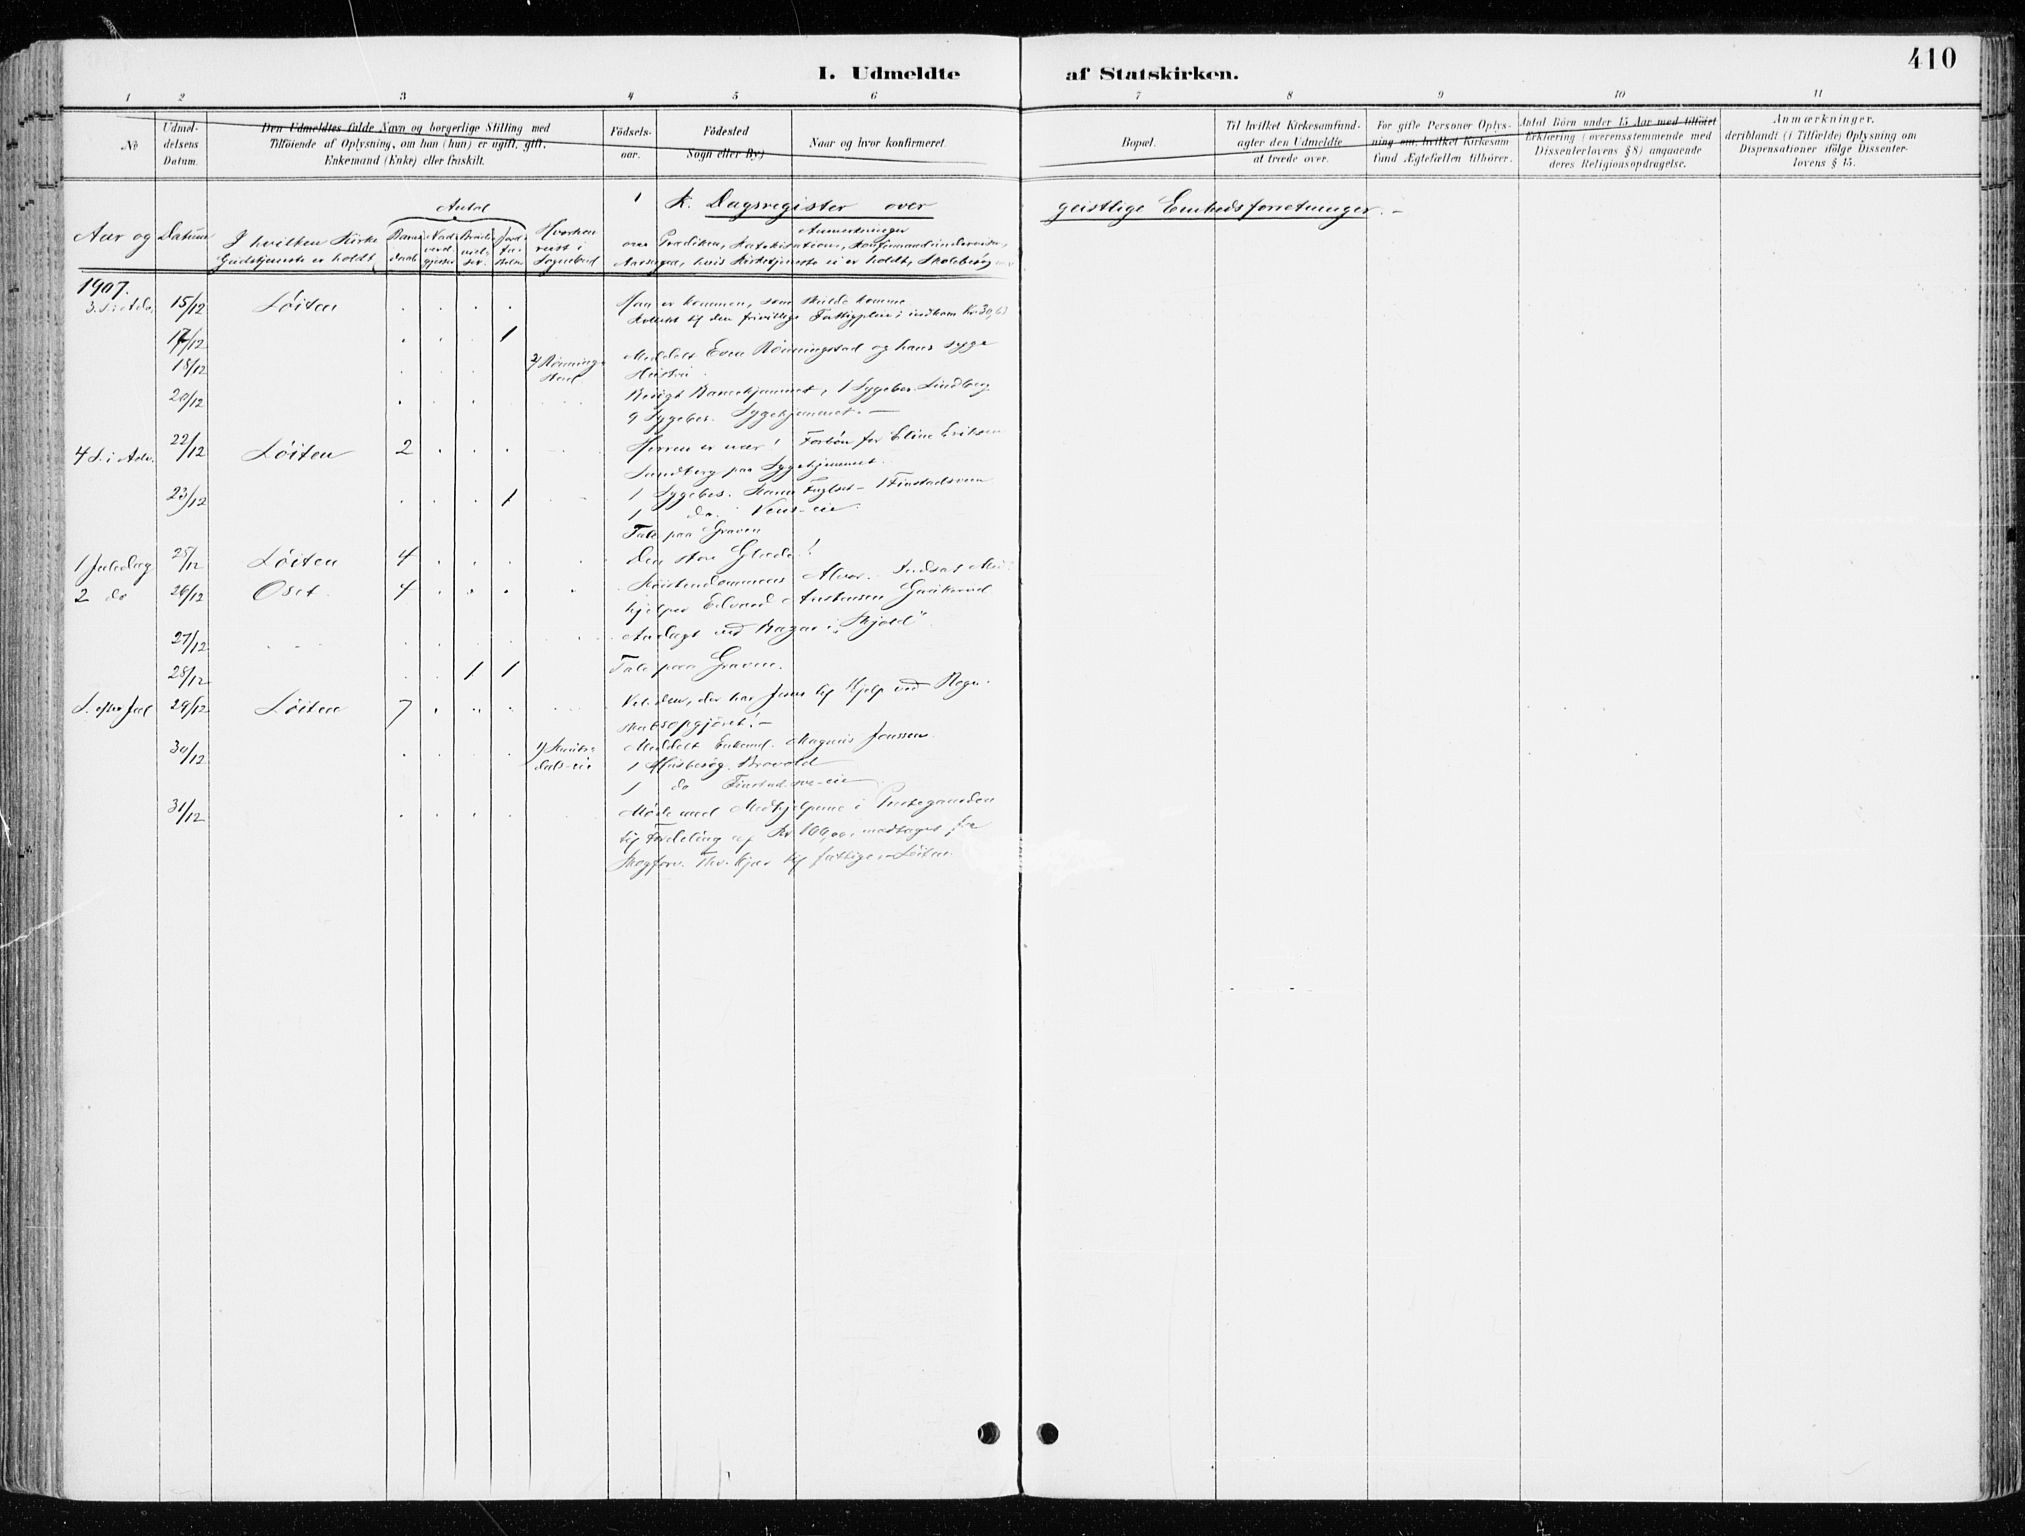 410
I. Udmeldte af Statskirken.
1 2 3 4 5 6 7 8 9 10 11
No
Udmel-
delsens
Datum.
Den Udmeldtes fulde Navn og borgerlige Stilling med
Tilföiende af Oplysning, om han (hun) er ugift, gift,
Enkemand (Enke) eller fraskilt.
Födsels-
aar.
Födested
Sogn eller By)
Naar og hvor konfirmeret
Bopæl.
Til hvilket Kirkesamfund-
agter den Udmeldte
at træde over.
For gifte Personer Oplys-
ning om, hvilket Kirkesam
fund Ægtefællen tilhörer.
Antal Börn under 15 Aar med tilföiet
Erklæring (overensstemmende med
Dissenterlovens § 8) angaaende
deres Religionsopdragelse.
Anmærkninger.
deriblandt (i Tilfælde) Oplysning om
Dispensationer ifölge Dissenter-
lovens § 15.
K. Dagsregister over geistlige Embedsforretninger. –
Aar og Datum
I hvilken Kirke
Gudstjeneste er holdt
Antal
Barne
daab
Nad
verd
gjester
Brude
viel-
ser
Jord
fæ-
stelser
Hvorhen
reist i
Sognebud
Anmerkninger
om Prædiken, Katekisation, Konfirmandundervisn,
Aarsagen, hvis Kirketjeneste ei er holdt, Skolebesøg
1907.
3. S. i Adv. 15/12 Löiten . . . . Han er kommen, som skulde komme
Kollekt til den frivillige Fattigpleie; indkom Kr. 30,63
17/12 . . . 1
18/12 . . . . 2/ Rönning-
stad Meddelt Even Rönningstad og hans syge
Hustru.
20/12 . . . . Besögt Barnehjemmet, 1 Sygebes. Lindberg
9 Sygebes. Sygehjemmet. –
4 S. i Adv. 22/12 Löiten 2 . . . Herren er nær! Forbön for Eline Eriksen
Sandberg paa Sygehjemmet.
23/12 . . . 1 1 Sygebes. Fuglset – Finstadsveen
1 do.
Tale paa Graven
1 Juledag 25/12 Löiten 4 . . . Den store Glæde!
2 do 26/12 Oset. 4 . . . Kristendommens Alvor. Indsat Med-
hjelper Edvard
27/12 . . . . Andagt ved Bazar i „Skjold".
28/12 . . 1 1 Tale paa Graven.
S. efter Jul 29/12 Löiten 7 . . . Vel den, der har Jesus til Hjelp ved Regn-
skabsopgjöret! –
30/12 . . . . 1/
dals-eie Meddelt Enkemd. Magnus Jonssen.
1 Husbesög
1 do
31/12 . . . . Möde med Medhjelperne i Prestegaarden
til Fordeling af Kr. 100,00, modtaget fra
Skogforv. Th. Kjær til fattige i Löiten.